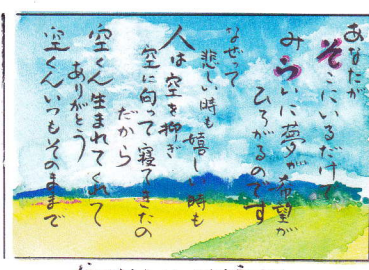 あなたが
そこにいるだけで
みらいに夢が希望が
ひろがるのです
なぜって
悲しい時も嬉しい時も
人は空を抑ぎ
空に向って寝てきたの
だから
空くん生まれてくれて
ありがとう
空くんいつもそのままで